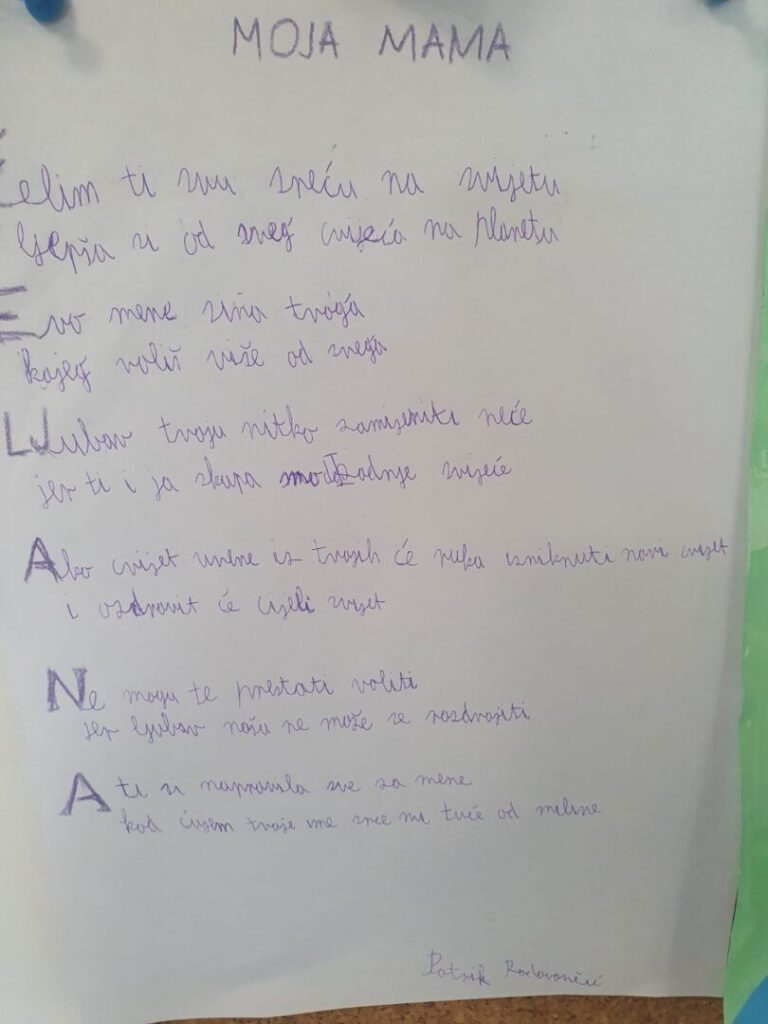 MOJA MAMA
Želim ti svu sreću na svijetu
ljepša si od sveg cvijeća na planetu
Evo mene sina tvoga
kojeg voliš više od svega
Ljubav tvoju nitko zamijeniti neće
jer ti i ja skupa smo zadnje svijeće
Ako cvijet uvene iz tvojih će ruka izniknuti novi cvijet
i ozdravit će cijeli svijet
Ne mogu te prestati voliti
jer ljubav naša ne može se razdvojiti
A ti si napravila sve za mene
kad čujem tvoje ime srce mi tuče od miline
Patrik